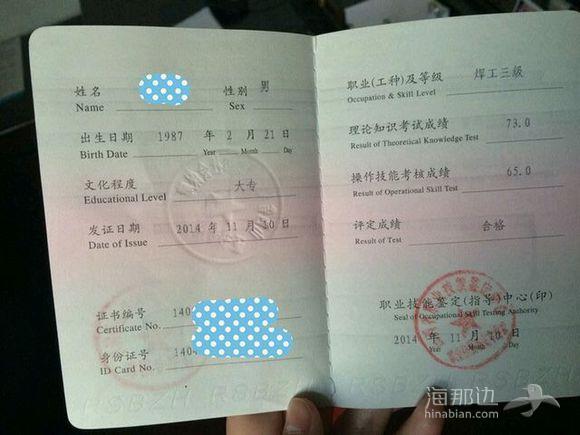 姓名 性别 男
Name Sex
出生日期 1987 年 2 月 21 日
Birth Date Year Month Day
文化程度 大专
Educational Level
发证日期 2014 年 11 月 10 日
Date of Issue Year Month Day
证书编号 140
Certificate No.
身份证号 140
ID Card No.
职业(工种)及等级 焊工三级
Occupation & Skill Level
理论知识考试成绩 73.0
Result of Theoretical Knowledge Test
操作技能考核成绩 65.0
Result of Operational Skill Test
评定成绩 合格
Result of Test
职业技能鉴定(指导)中心(印)
Seal of Occupational Skill Testing Authority
2014 年 11 月 10 日
Year Month Day
海那边
hinabian.com